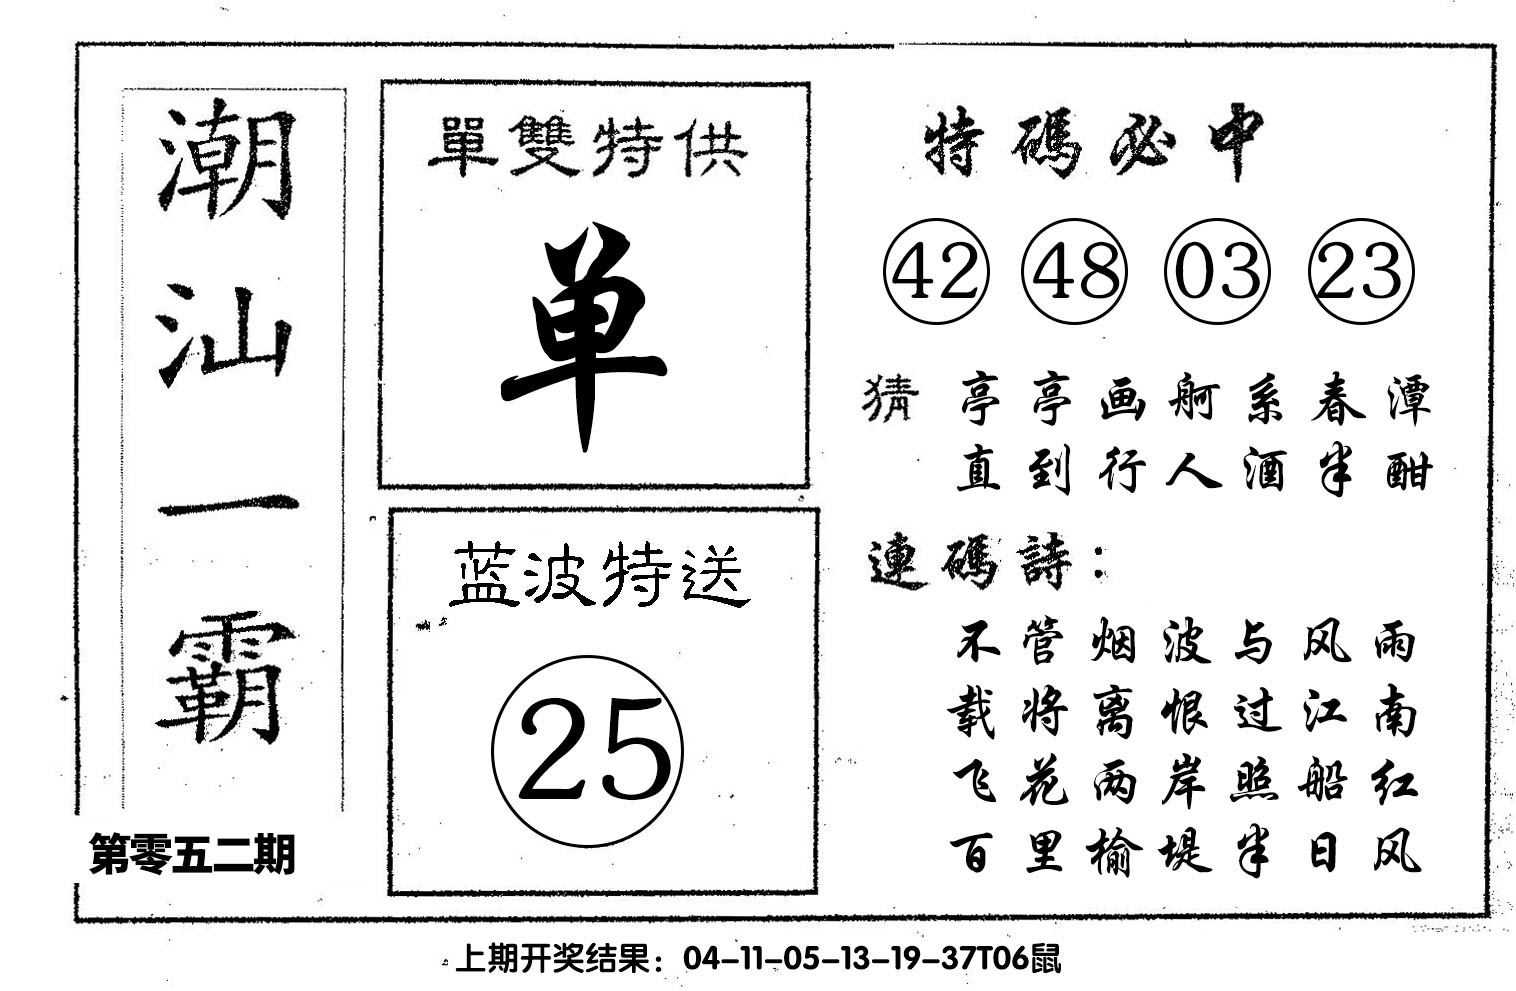 潮汕一霸
第零五二期
單雙特供
单
蓝波特送
25
特碼必中
42 48 03 23
猜 亭亭画舸系春潭
直到行人酒半酣
連碼詩：
不管烟波与风雨
载将离恨过江南
飞花两岸照船红
百里榆堤半日风
上期开奖结果：04-11-05-13-19-37T06鼠